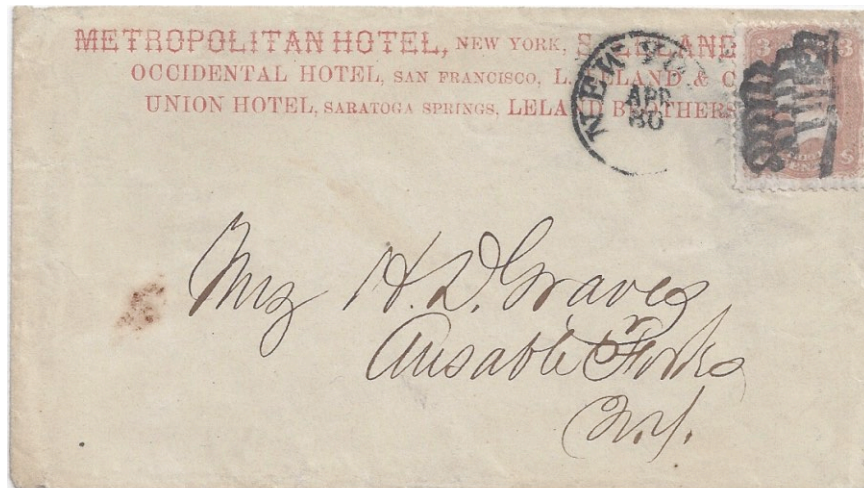 METROPOLITAN HOTEL, NEW YORK, S. LELAND
OCCIDENTAL HOTEL, SAN FRANCISCO, L. LELAND & C
UNION HOTEL, SARATOGA SPRINGS, LELAND BROTHERS
NEW YORK
APR
30
3 3
Mrs H. D. Graves
Ausable Forks
N.Y.